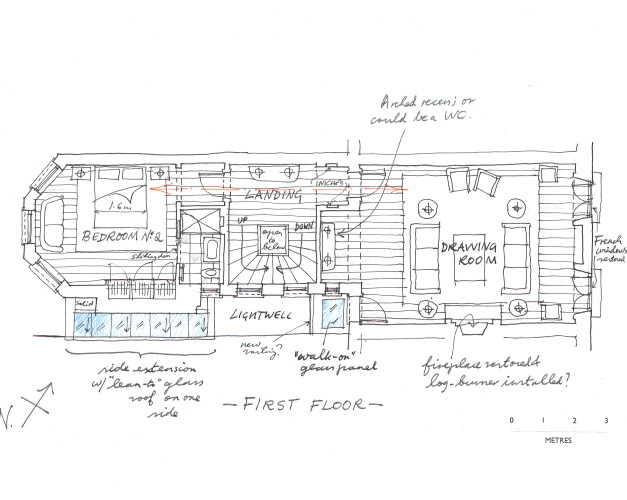 Arched recess or
could be a WC.
LANDING
(NICHES)
1.6m
BEDROOM Nº2
UP
DOWN
open
to
below
DRAWING
ROOM
French
windows
restored
Solid
LIGHTWELL
new
"walk-on"
glass panel
side extension
w/ "lean-to" glass
roof on one
side
fireplace restored &
log-burner installed?
N.
- FIRST FLOOR -
0 1 2 3
METRES